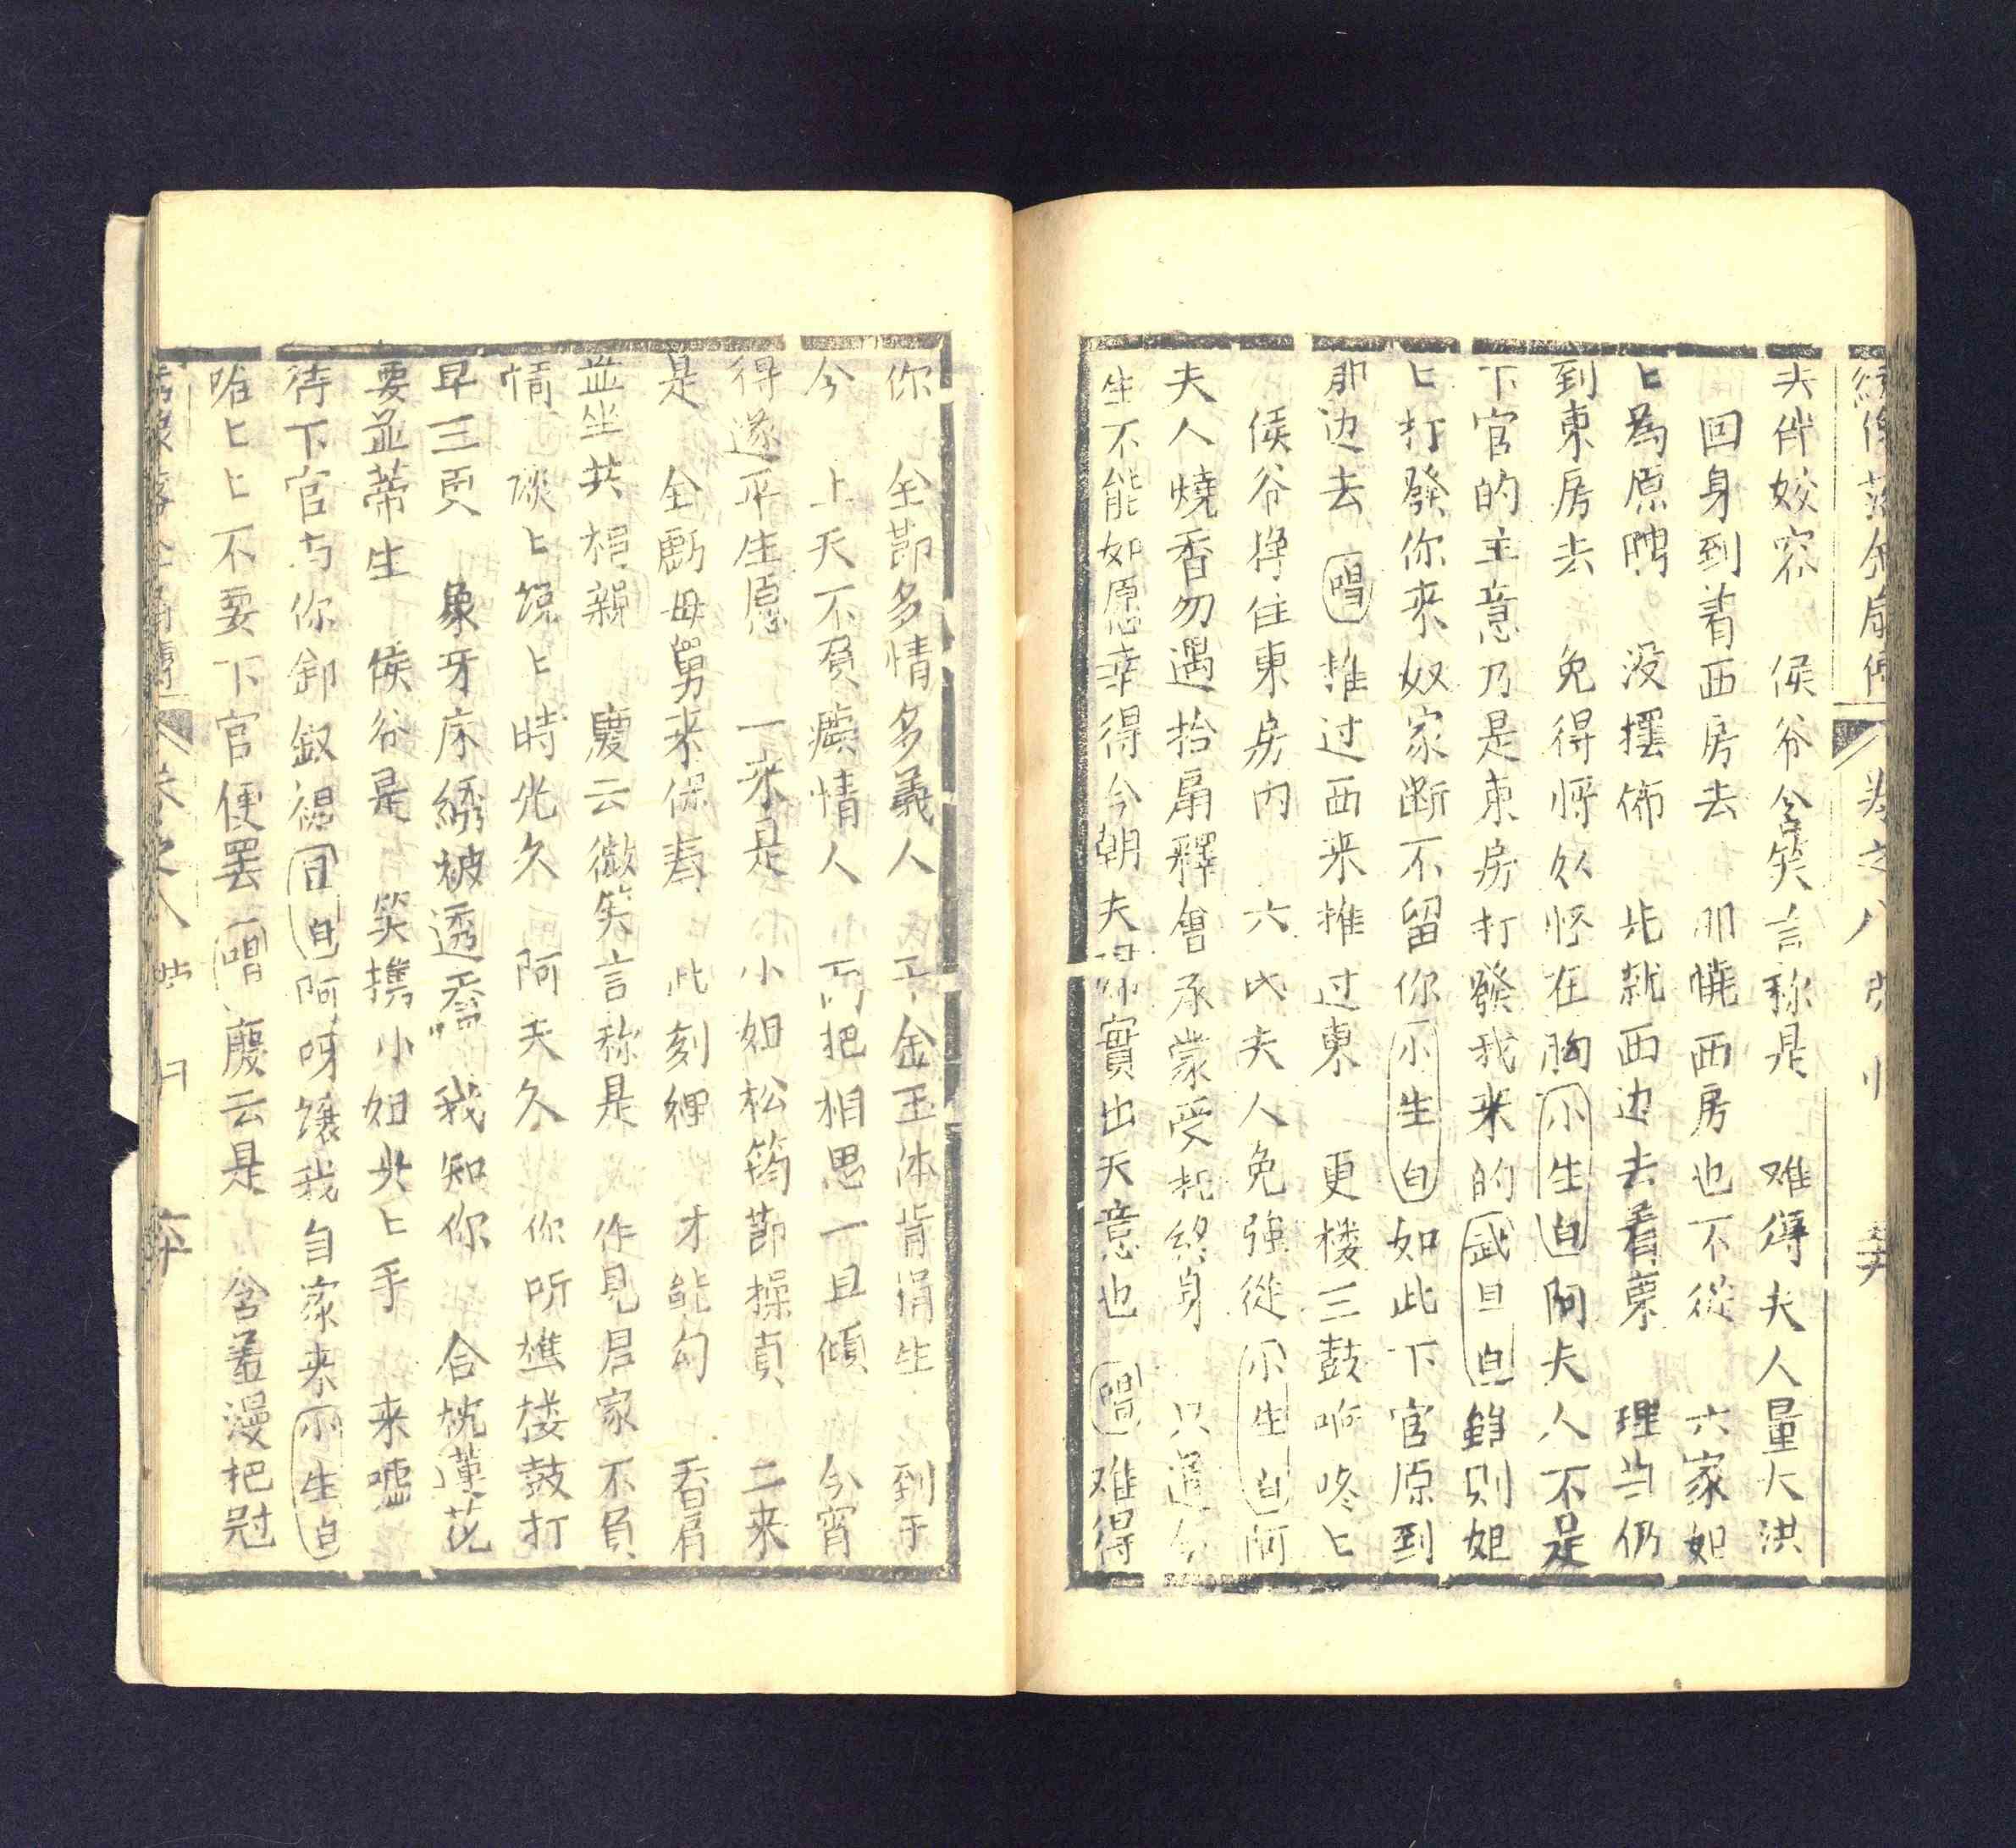 卷之八
夫伴姣容　侯爷含笑言称是　难得夫人量大洪
回身到着西房去　西房也不從　六家姐
匕為原聘　没擺佈　此就西边去看東　理当仍
到東房去　免得將奴怪在胸(小生白)阿夫人不是
下官的主意乃是東房打發我来的(武旦白)虽则姐
匕打發你来奴家断不留你(小生白)如此下官原到
那边去(唱)推过西来推过東　更楼三鼓响咚匕
侯爷挣住東房内　六氏夫人免强從(小生白)阿
夫人燒香勿遇拾扇釋會承蒙受托終身　只道今
生不能如愿幸得今朝夫實出天意也(唱)难得
你　全節多情多義人　金玉体肯捐生　到于
今　上天不負痴情人　而把相思一旦傾　今宵
得遂平生愿　一来是　小姐松筠節操貞　二来
是　全虧母舅来保壽　此刻裡　才能勾　香肩
並坐共相親　慶云微笑言称是　作見君家不負
情　談匕説匕時光久　阿夫久　你听樵楼鼓打
早三更　象牙床綉被透香噴　我知你　合枕蓮花
要並蒂生　侯爷是　笑携小姐此匕手　来嘘
待下官与你卸釵裙(旦白)阿呀讓我自家来(小生白)
啥匕匕不要下官便罢(唱)慶云是　含羞漫把冠
卷之八